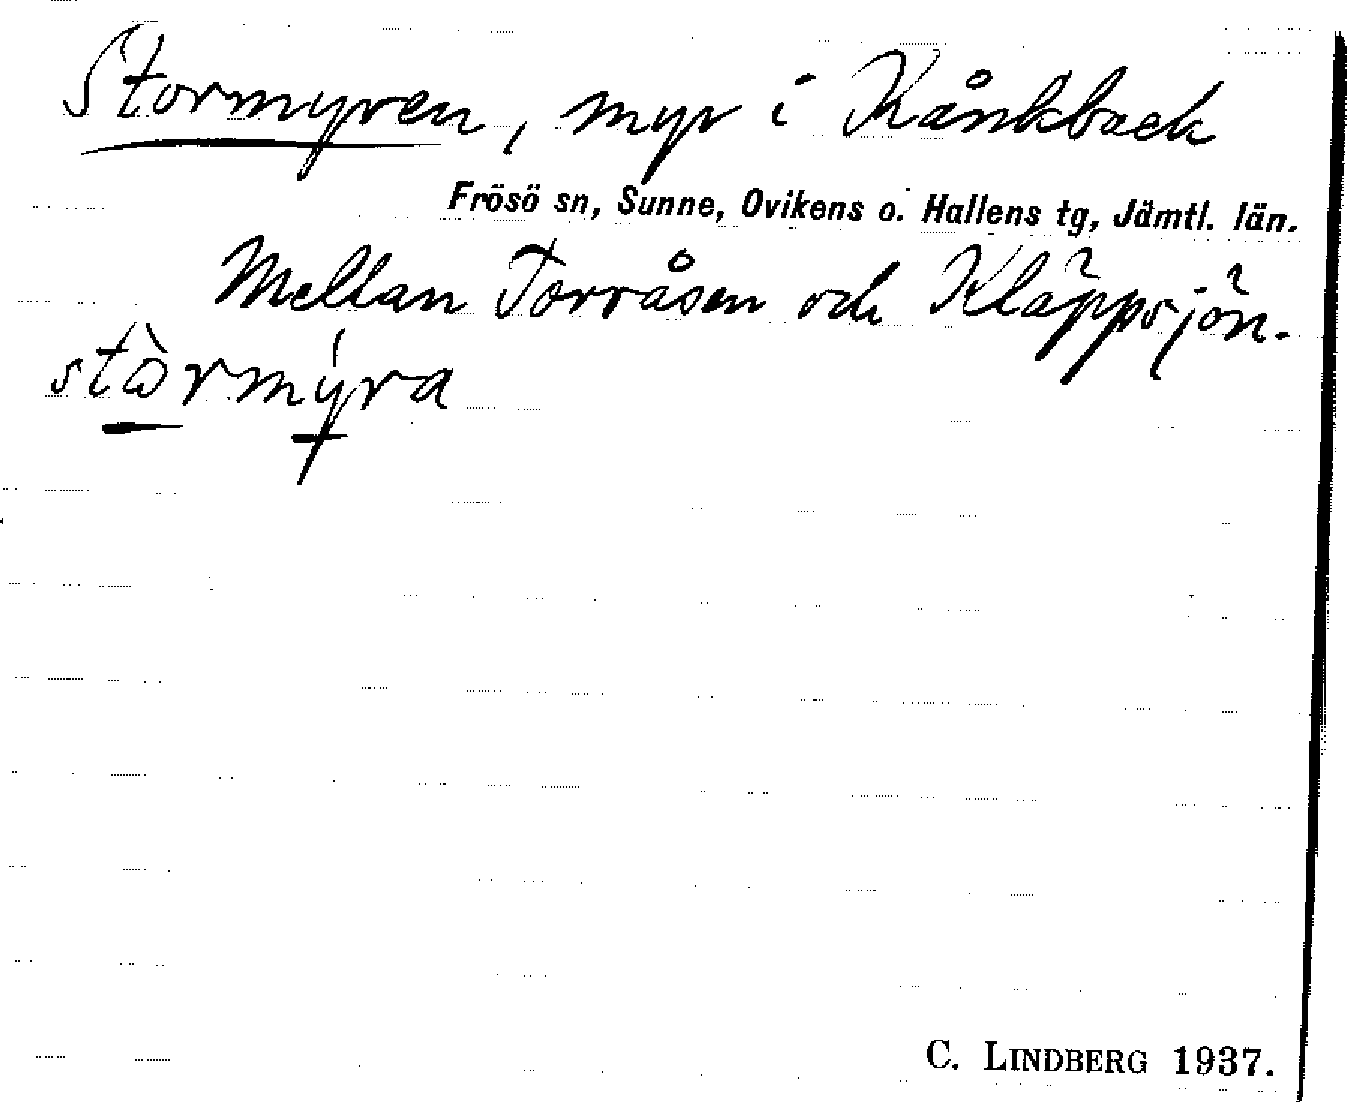 Stormyren, myr i Kånkback
Frösö sn, Sunne, Ovikens o. Hallens tg, Jämtl. län.
Mellan Torråsen och Kläppsjön.
stòrmýra
C. LINDBERG 1937.